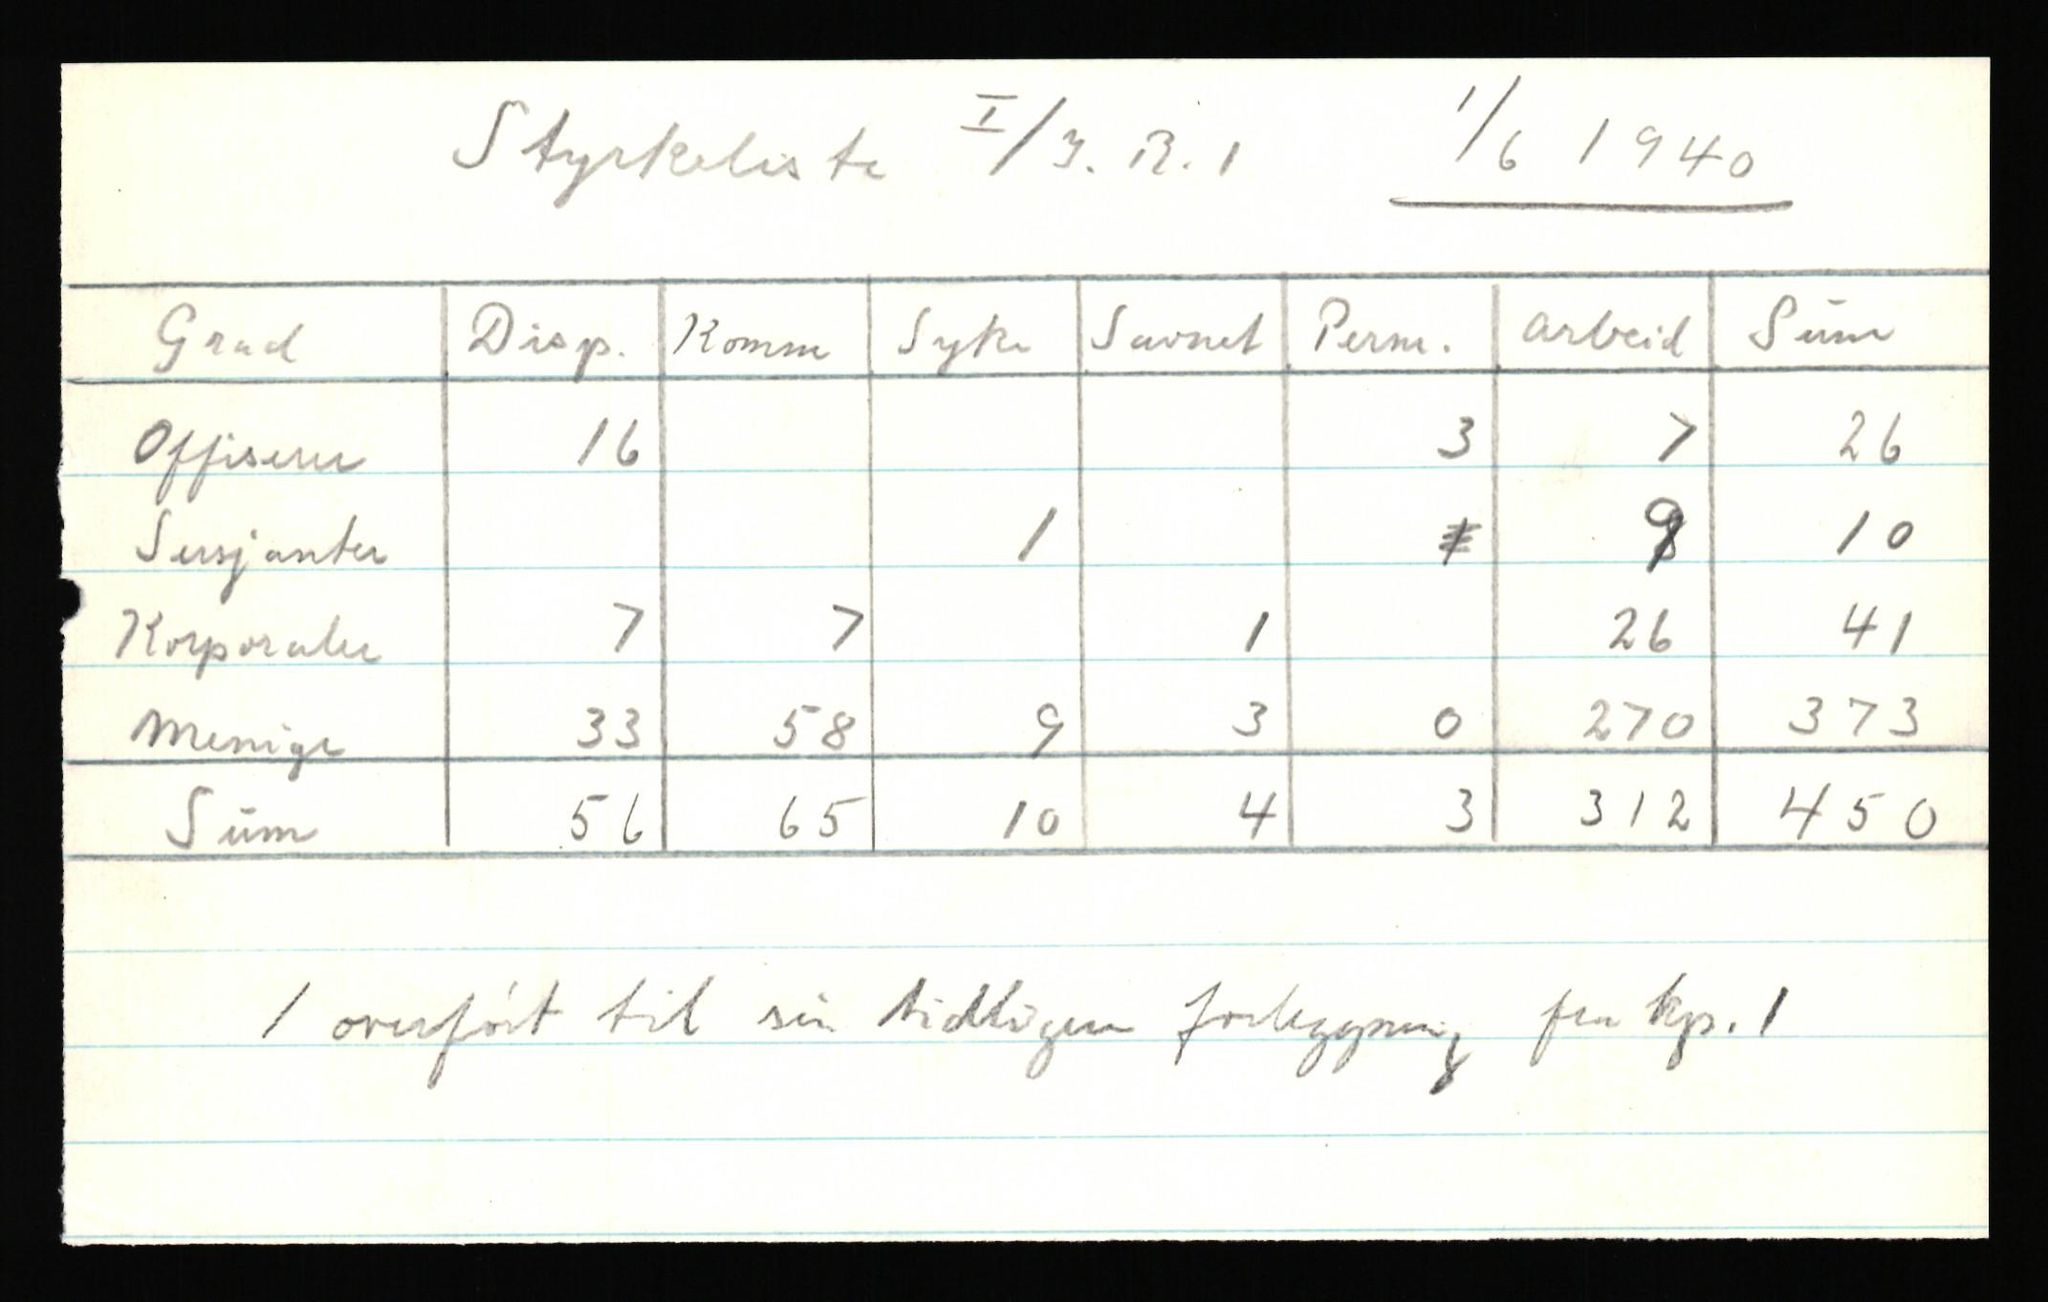 Styrkeliste I/I.R.1 1/6 1940
Grad Disp. Komm Syke Savnet Perm. Arbeid Sum
Offiserer 16 3 7 26
Sersjanter 1 9 10
Korporaler 7 7 1 26 41
Menige 33 58 9 3 0 270 373
Sum 56 65 10 4 3 312 450
1 overført til sin tidligere forlegning fra kp. 1